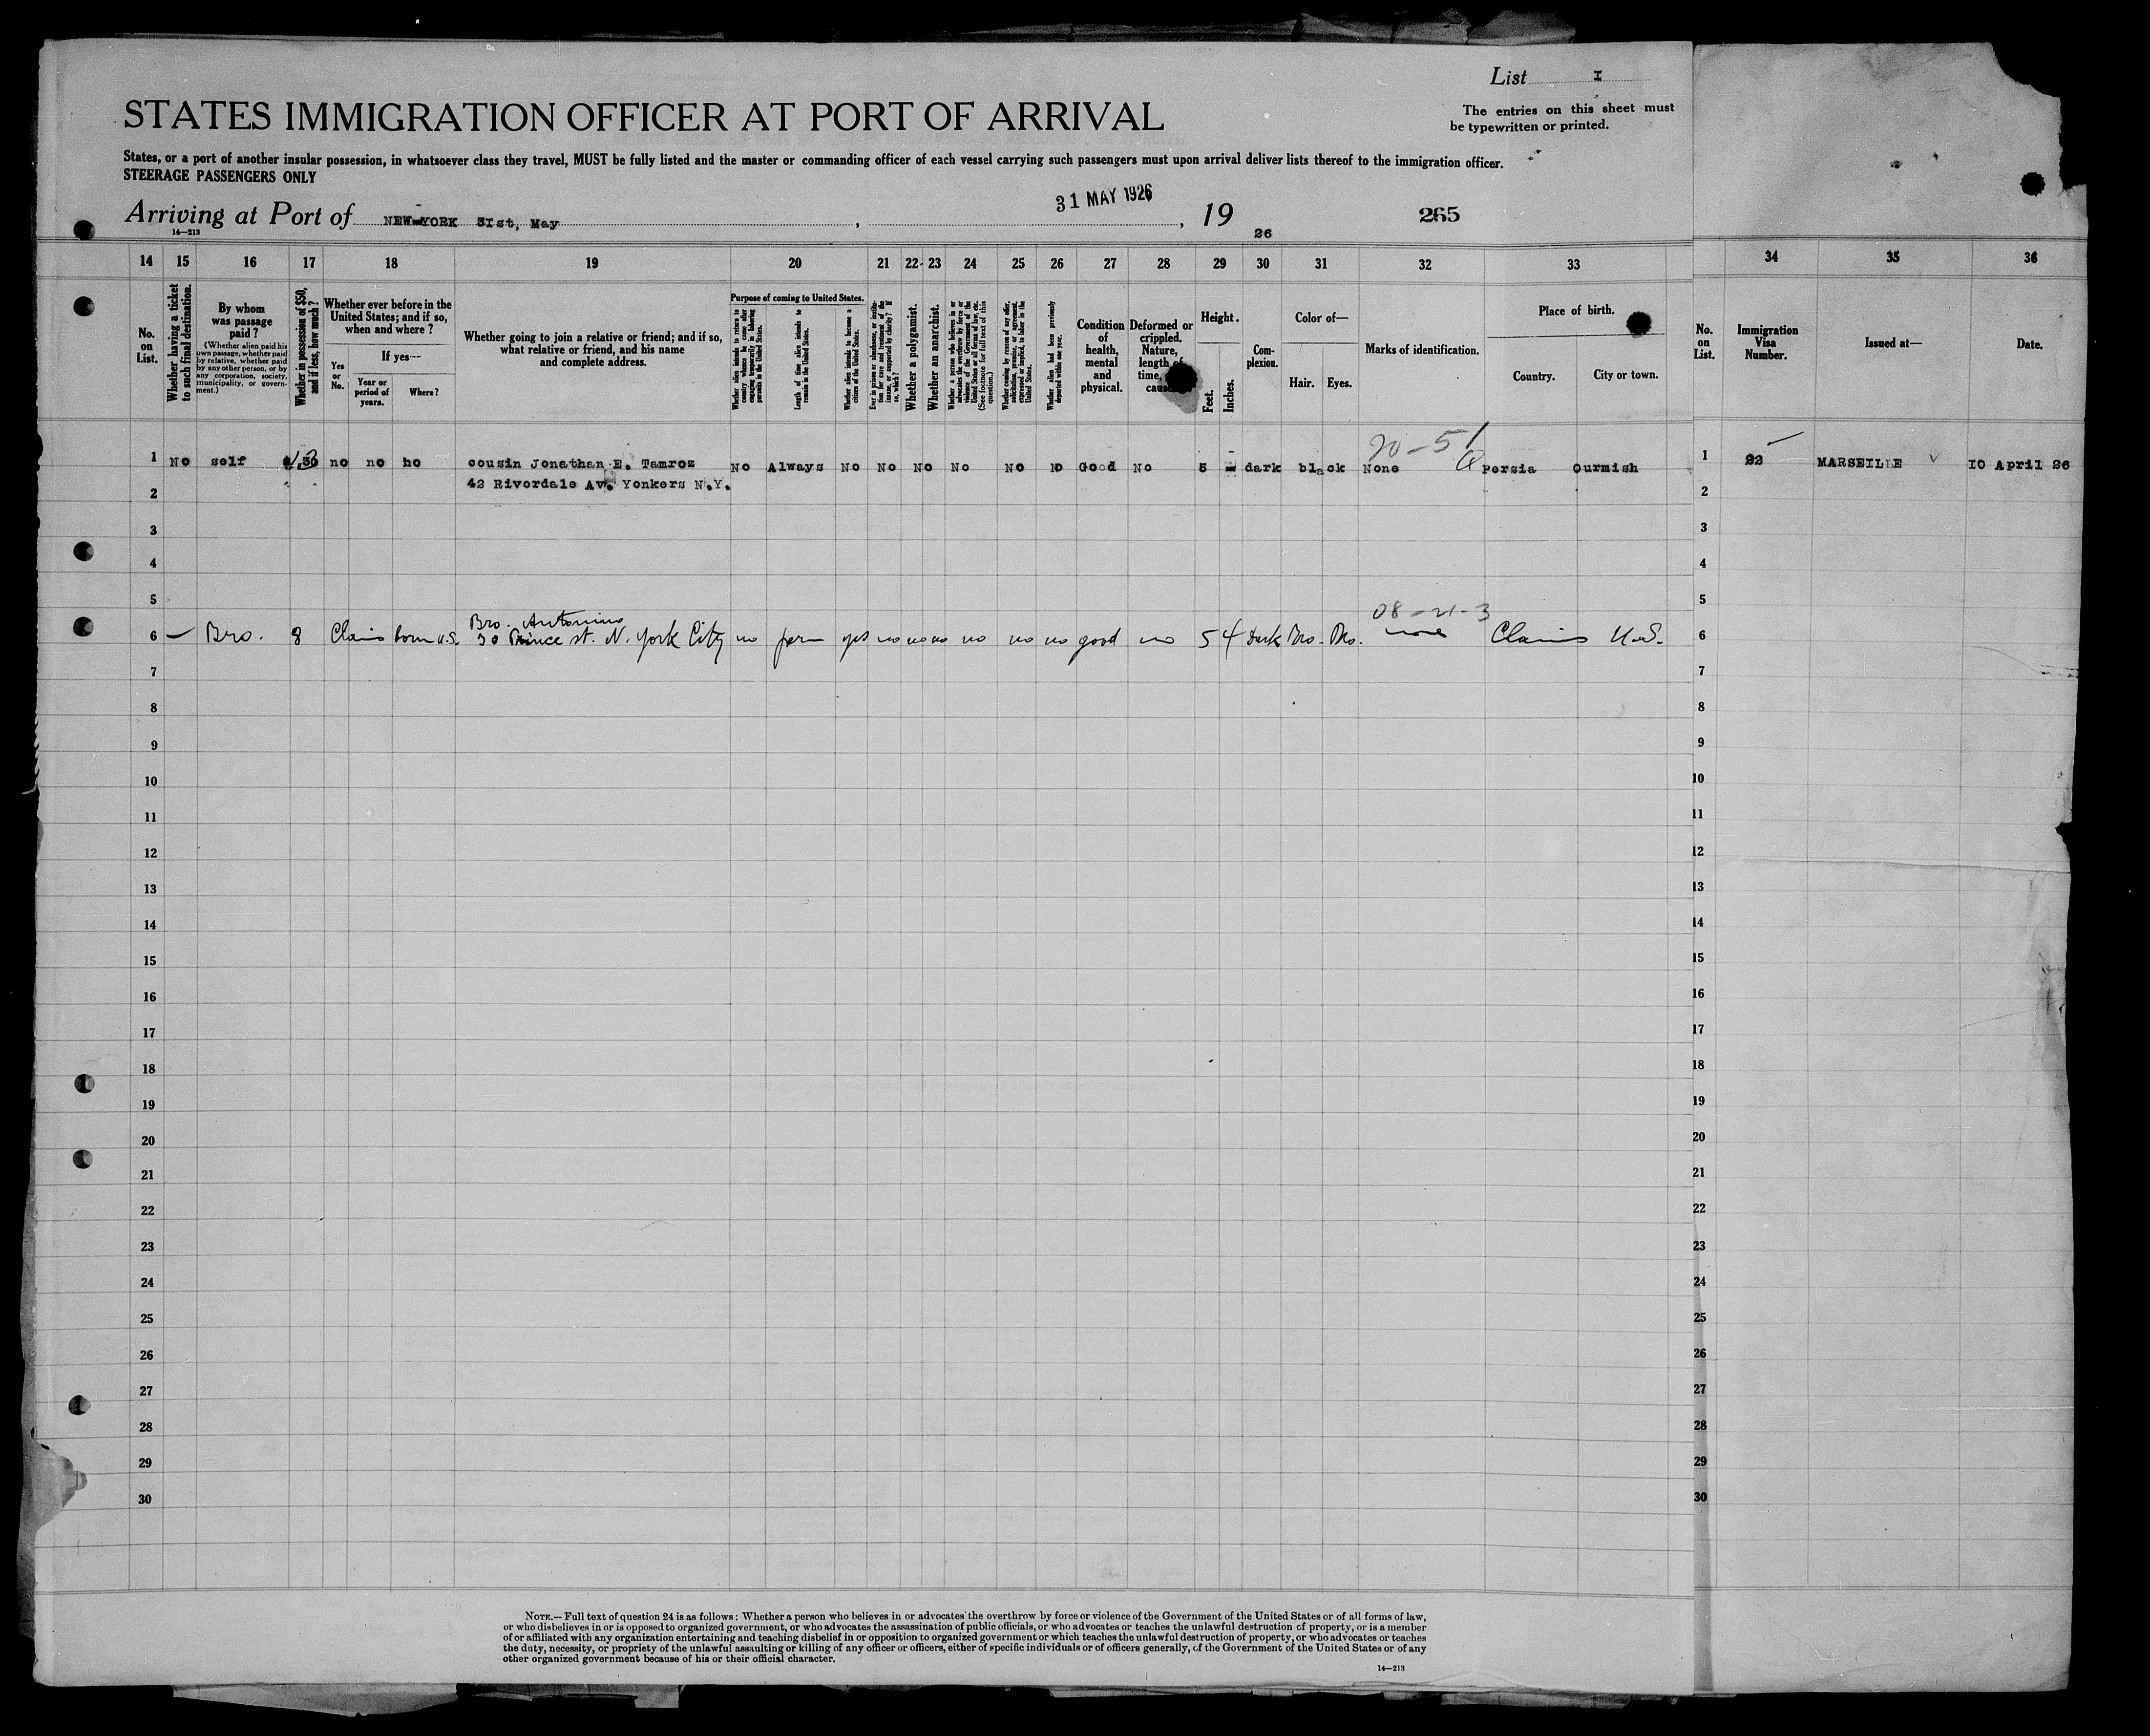 List I
The entries on this sheet must
be typewritten or printed.
STATES IMMIGRATION OFFICER AT PORT OF ARRIVAL
States, or a port of another insular possession, in whatsoever class they travel, MUST be fully listed and the master or commanding officer of each vessel carrying such passengers must upon arrival deliver lists thereof to the immigration officer.
STEERAGE PASSENGERS ONLY
31 MAY 1926
Arriving at Port of NEW-YORK 3Ist, May , , 19 26 265
14—213
14 15 16 17 18 19 20 21 22 23 24 25 26 27 28 29 30 31 32 33 34 35 36
No. on List.
Whether having a ticket to such final destination.
By whom was passage paid?
(Whether alien paid his own passage, whether paid by relative, whether paid by any other person, or by any corporation, society, municipality, or government.)
Whether in possession of $50, and if less, how much?
Whether ever before in the United States; and if so, when and where?
Yes or No.
If yes—
Year or period of years.
Where?
Whether going to join a relative or friend; and if so, what relative or friend, and his name and complete address.
Purpose of coming to United States.
Whether alien intends to return to country whence he came after engaging temporarily in laboring pursuits in the United States.
Length of time alien intends to remain in the United States.
Whether alien intends to become a citizen of the United States.
Ever in prison or almshouse, or institution for care and treatment of the insane, or supported by charity? If so, which?
Whether a polygamist.
Whether an anarchist.
Whether a person who believes in or advocates the overthrow by force or violence of the Government of the United States or all forms of law, etc. (See footnote for full text of this question.)
Whether coming by reason of any offer, solicitation, promise, or agreement, expressed or implied, to labor in the United States.
Whether alien had been previously deported within one year.
Condition of health, mental and physical.
Deformed or crippled. Nature, length of time, cause
Height.
Feet.
Inches.
Complexion.
Color of—
Hair. Eyes.
Marks of identification.
Place of birth.
Country. City or town.
No. on List.
Immigration Visa Number.
Issued at—
Date.
20-51
1 No self 30 no no no cousin Jonathan E. Tamroz No Always No No No No No No Good No 5 - dark black None Persia Ourmish 1 22 MARSEILLE 10 April 26
42 Rivordale Av. Yonkers N.Y.
2 2
3 3
4 4
5 5
Bro. Antonino 08-21-3
6 — Bro. 8 Claims born U.S. 30 Prince st. N. York City no perm yes no no no no no no good no 5 4 Dark Bro. Bro. none Claims U.S. 6
7 7
8 8
9 9
10 10
11 11
12 12
13 13
14 14
15 15
16 16
17 17
18 18
19 19
20 20
21 21
22 22
23 23
24 24
25 25
26 26
27 27
28 28
29 29
30 30
NOTE.—Full text of question 24 is as follows: Whether a person who believes in or advocates the overthrow by force or violence of the Government of the United States or of all forms of law,
or who disbelieves in or is opposed to organized government, or who advocates the assassination of public officials, or who advocates or teaches the unlawful destruction of property, or is a member
of or affiliated with any organization entertaining and teaching disbelief in or opposition to organized government or which teaches the unlawful destruction of property, or who advocates or teaches
the duty, necessity, or propriety of the unlawful assaulting or killing of any officer or officers, either of specific individuals or of officers generally, of the Government of the United States or of any
other organized government because of his or their official character.
14—213